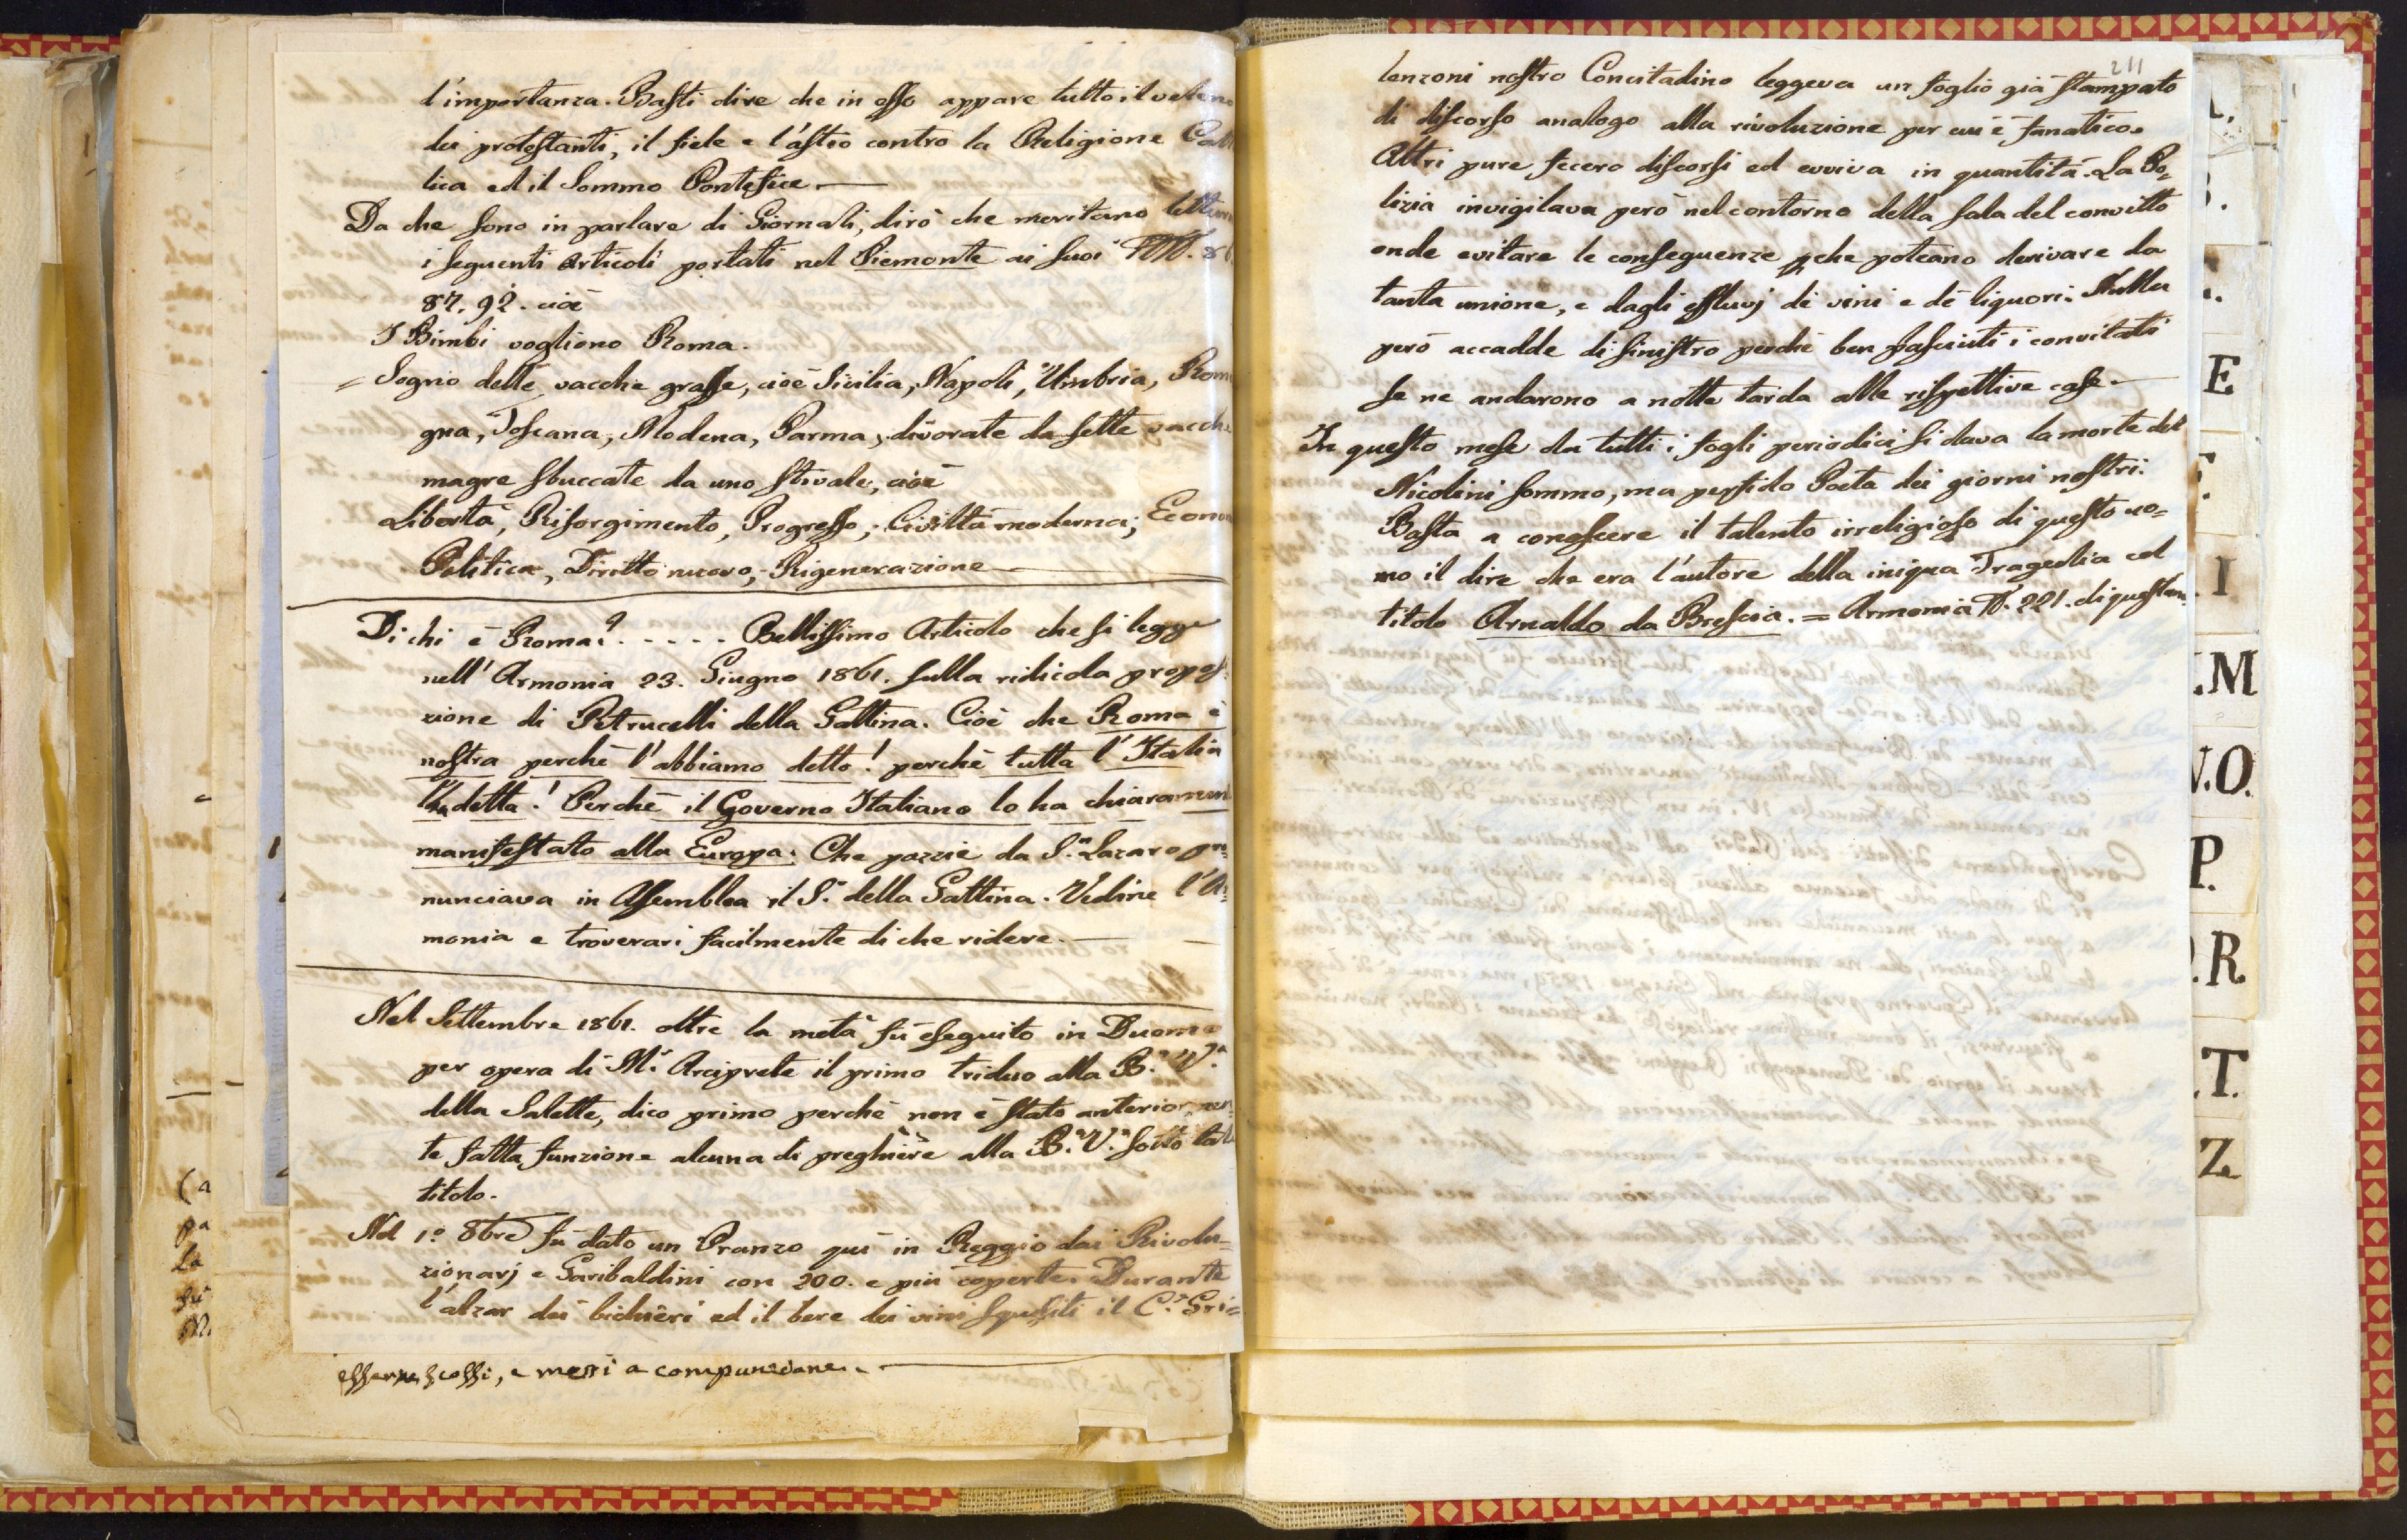 l'importanza. Basti dire che in esso appare tutto il veleno
dei protestanti, il fiele e l'astio contro la Religione Catt
lica ed il Sommo Pontefice. —
Da che sono in parlare di Giornali, dirò che meritano lettura
i seguenti Articoli portati nel Piemonte ai suoi NN. 86
87. 92. cioè
I Bimbi vogliono Roma.
= Sogno delle vacche grasse, cioè Sicilia, Napoli, Umbria, Roma
gna, Toscana, Modena, Parma, divorate da sette vacche
magre sbuccate da uno stivale, cioè
Libertà, Risorgimento, Progresso, Civiltà moderna, Econom
Politica, Diritto nuovo, Rigenerazione —
Di chi è Roma? ..... Bellissimo Articolo che si legge
nell'Armonia 23. Giugno 1861. sulla ridicola propos:
zione di Petrucelli della Gattina. Cioè che Roma è
nostra perchè l'abbiamo detto! perchè tutta l'Italia
l'ha detta! Perchè il Governo Italiano lo ha chiaramen
manifestato alla Europa. Che pazzie da S.n Lazaro pro
nunciava in Assemblea il S.r della Gattina. Vedine l'Ar=
monia e troverari facilmente di che ridere. —
Nel Settembre 1861. oltre la metà fù eseguito in Duomo
per opera di M.r Arciprete il primo triduo alla B.a V.a
della Salette, dico primo perchè non è stato anteriormen
te fatta funzione alcuna di preghiere alla B.a V.a sotto tale
titolo.
Nel 1.o 8bre fù dato un Pranzo quì in Reggio dai Rivolu=
zionarj e Garibaldini con 200. e più coperte. Durante
l'alzar dei bichieri ed il bere dei vini squisiti il C.e Gri=
esserne scossi, e messi a compunzione. —
(a
pa
La
fù
M.
211
lenzoni nostro Concitadino leggeva un foglio già stampato
di discorso analogo alla rivoluzione per cui è fanatico.
Altri pure fecero discorsi ed evviva in quantità. La Po=
lizia invigilava però nel contorno della sala del convitto
onde evitare le conseguenze che poteano derivare da
tanta unione, e dagli effluvj di vini e de liquori. Nulla
però accadde di sinistro perchè ben pasciuti i convitati
se ne andarono a notte tarda alle rispettive case. —
In questo mese da tutti i fogli periodici si dava la morte del
Nicolini sommo, ma perfido Poeta dei giorni nostri.
Basta a conoscere il talento irreligioso di questo uo=
mo il dire che era l'autore della iniqua Tragedia col
titolo Arnaldo da Brescia. = Armonia N. 221. di quest'an
E
I
.M
N.O.
P.
.R.
.T.
Z